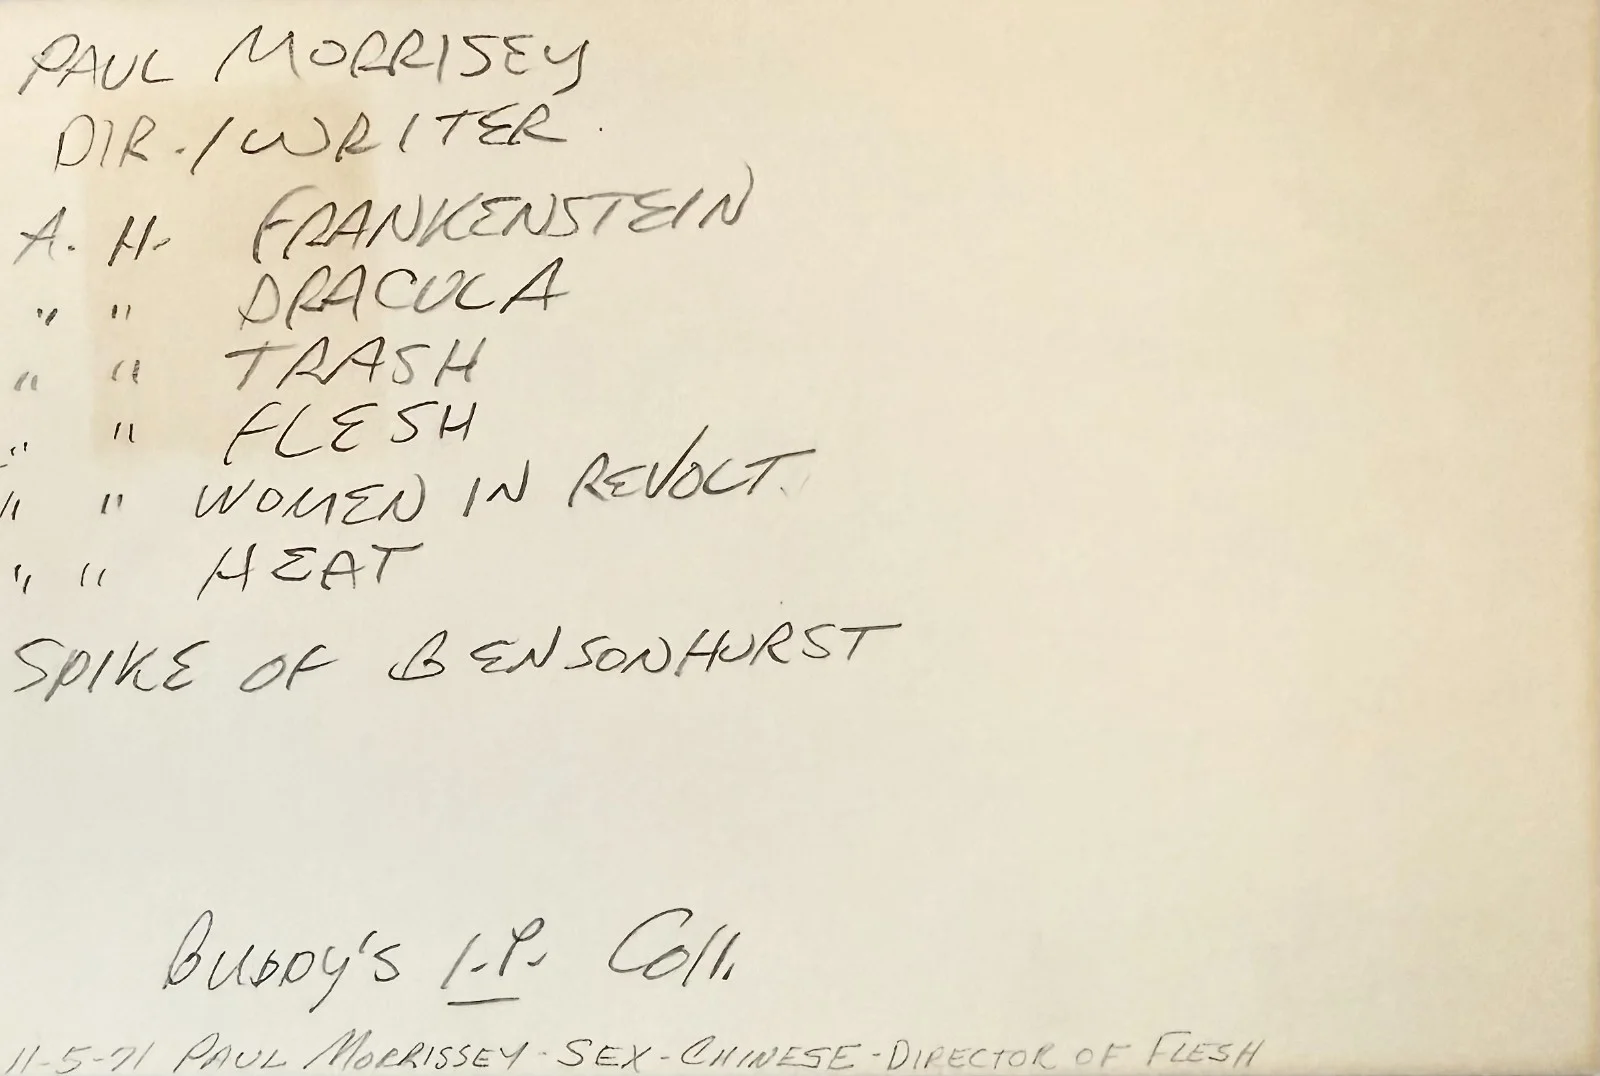 PAUL MORRISEY
DIR./WRITER
A. H. FRANKENSTEIN
" " DRACULA
" " TRASH
" " FLESH
" " WOMEN IN REVOLT
" " HEAT
SPIKE OF BENSONHURST
BUDDY'S I.P. Coll.
11-5-71 PAUL MORRISSEY - SEX - CHINESE - DIRECTOR OF FLESH